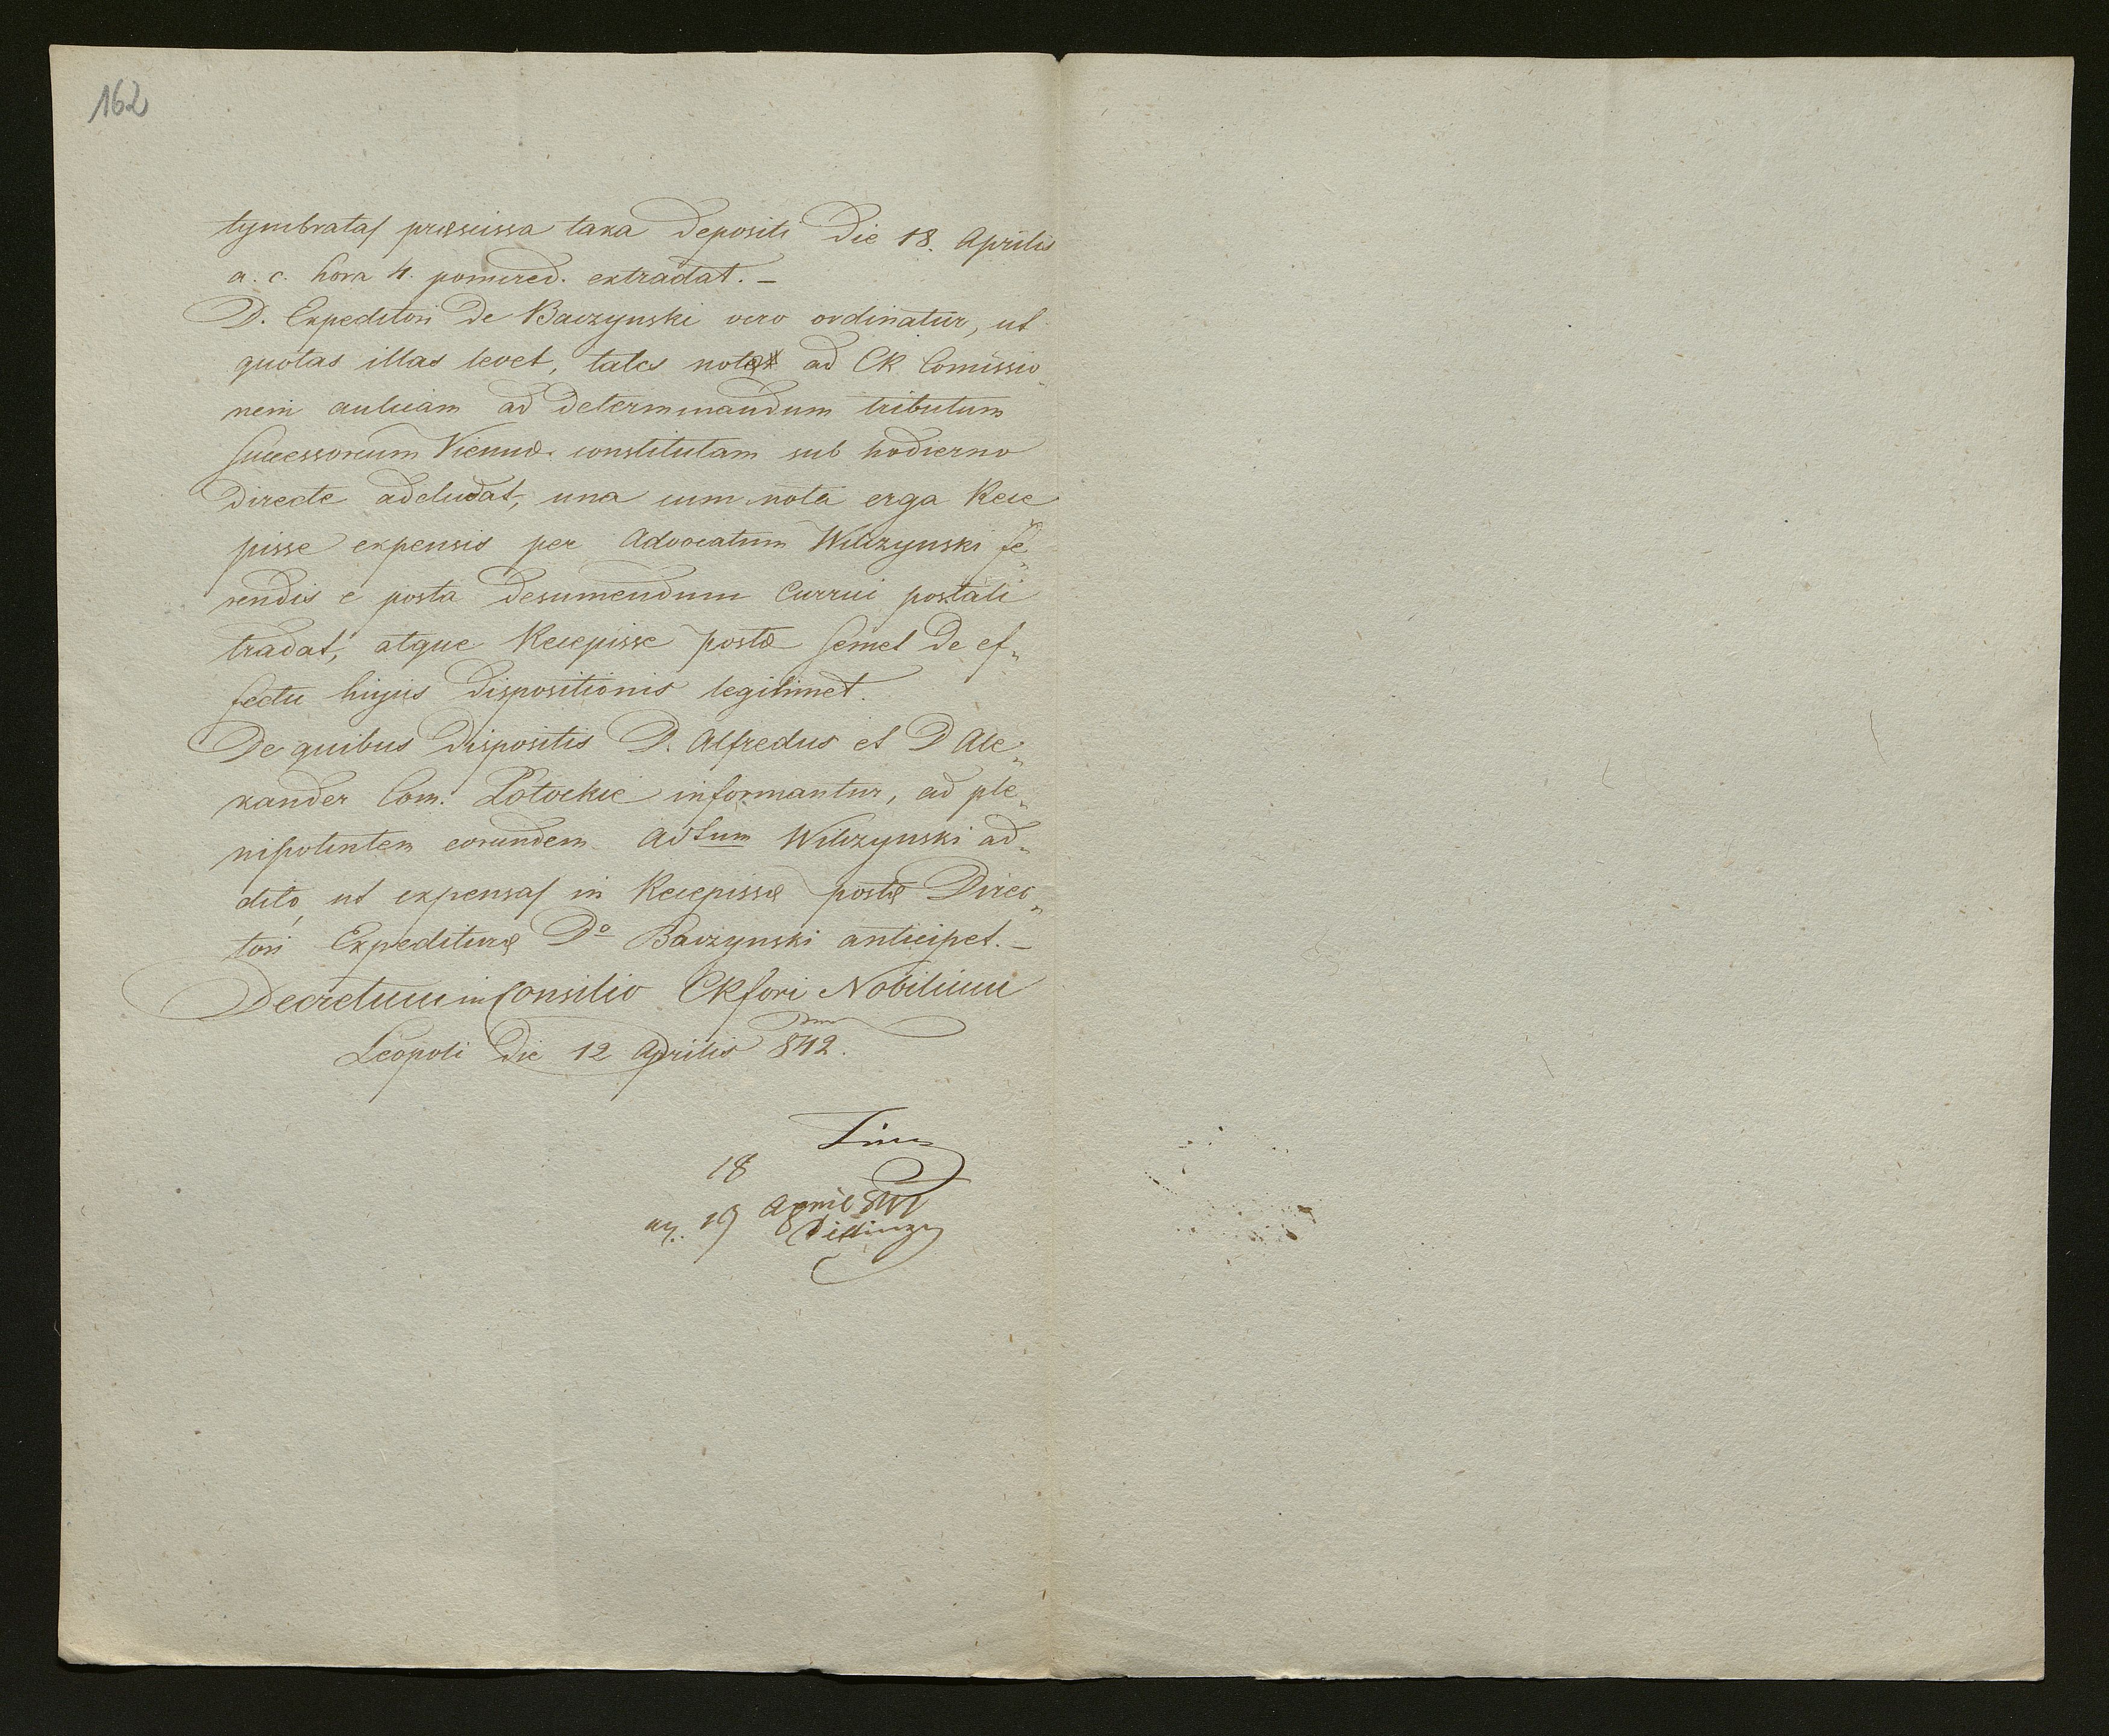 162
tymbratas præscissa taxa Depositi Die 18. Aprilis
a. c. hora 4. pomered. extradat. –
D. Expeditori De Baczynski vero ordinatur, ut
quotas illas levet, tales notæ ad CR Comissio„
nem aulicam ad Determinandum tributum
Successorum Viennæ constitutam sub hodierno
Directe adcludat, una cum nota erga Rece
pisse expensis per Advocatum Wilczynski fe„
rendis e posta Desumendum Currui postali
tradat, atque Recepisse postæ Semet De ef„
fectu hujus Dispositionis legitimet.
De quibus Dispositis D. Alfredus et D Ale„
xander Com. Potockie informantur, ad ple„
nipotentem eorundem Adtum Wilczynski ad„
dito, ut expensas in Recepisse postæ Direc„
tori Expedituræ Do Baczynski anticipet. –
Decretum in Consilio CR fori Nobilium
Leopoli Die 12 Aprilis 842.
18
19 April